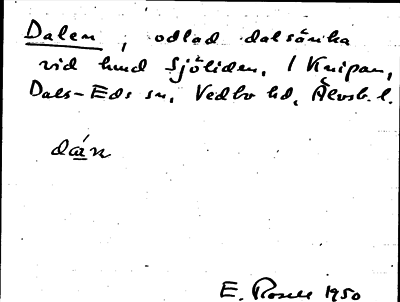 Dalen, odlad dalsänka
vid hmd Sjöliden, / Knipan,
Dals-Eds sn, Vedbo hd, Älvsb. l.
dán
E. Rosell 1950